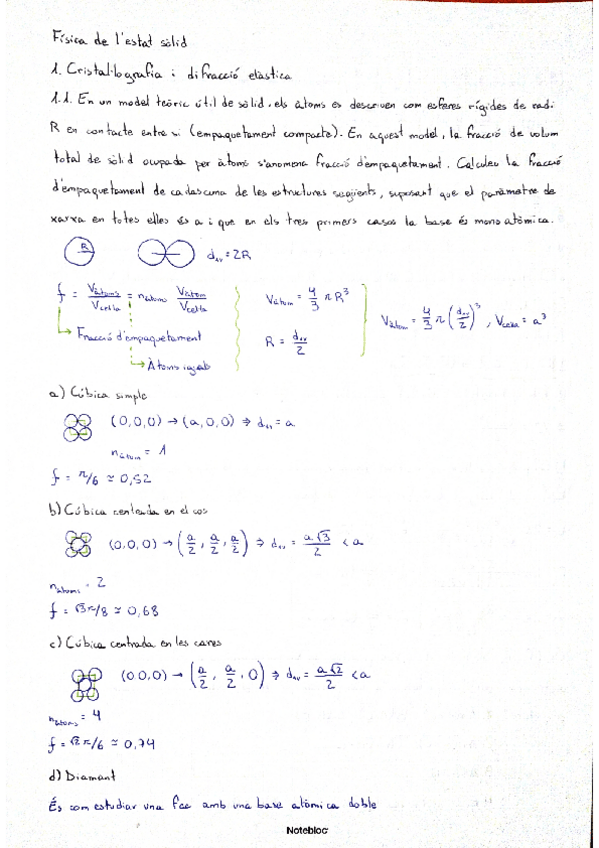 Física de l'estat sòlid
1. Cristal·lografia i difracció elàstica
1.1. En un model teòric útil de sòlid, els àtoms es descriuen com esferes rígides de radi
R en contacte entre si (empaquetament compacte). En aquest model, la fracció de volum
total de sòlid ocupada per àtoms s'anomena fracció d'empaquetament. Calculeu la fracció
d'empaquetament de cadascuna de les estructures següents, suposant que el paràmetre de
xarxa en totes elles és a i que en els tres primers casos la base és monoatòmica.
R d = 2R
f = V àtoms / V cel·la = n àtoms V àtom / V cel·la
V àtom = 4/3 π R³
V àtom = 4/3 π (d/2)³, V cel·la = a³
Fracció d'empaquetament
R = d/2
Àtoms
a) Cúbica simple
(0,0,0) → (a,0,0) ⇒ d = a
n àtom = 1
f = π/6 ≃ 0,52
b) Cúbica centrada en el cos
(0,0,0) → (a/2, a/2, a/2) ⇒ d = a√3/2 < a
n àtoms = 2
f = √3π/8 ≃ 0,68
c) Cúbica centrada en les cares
(0,0,0) → (a/2, a/2, 0) ⇒ d = a√2/2 < a
n àtoms = 4
f = √2π/6 ≃ 0,74
d) Diamant
És com estudiar una fcc amb una base atòmica doble
Notebloc